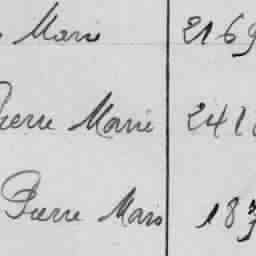 Marie 2169
Pierre Marie 241
Pierre Mars 18